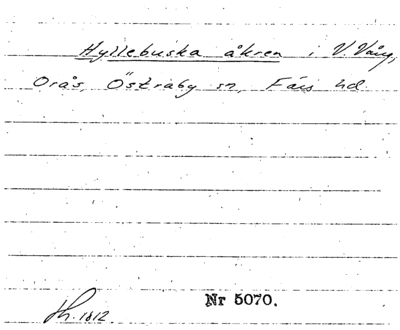 Hyllebuska åkren i V. Vång,
Orås, Östraby sn, Färs hd.
Nr 5070.
Lh. 1812.